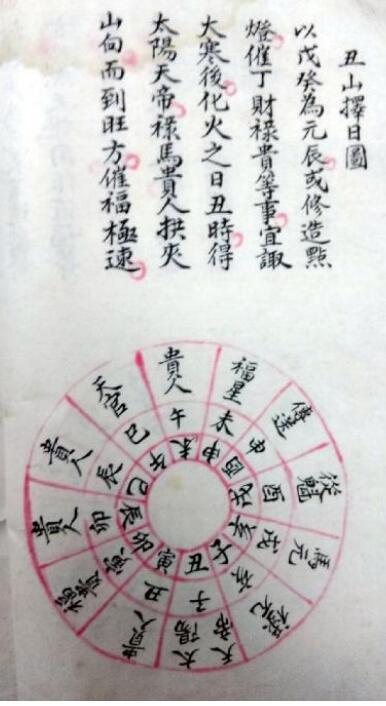 丑山擇日圖
以戊癸為元辰或修造點
燈催丁財祿貴等事宜諏
大寒後化火之日丑時得
太陽天帝祿馬貴人拱夾
山向而到旺方催福極速
貴人
福星
傳送
從魁
馬元
太陽
天帝
貴人
貴人
貴人
天官
午
未
申
酉
戌
亥
子
丑
寅
卯
辰
巳
未
申
酉
戌
亥
子
丑
寅
卯
辰
巳
午